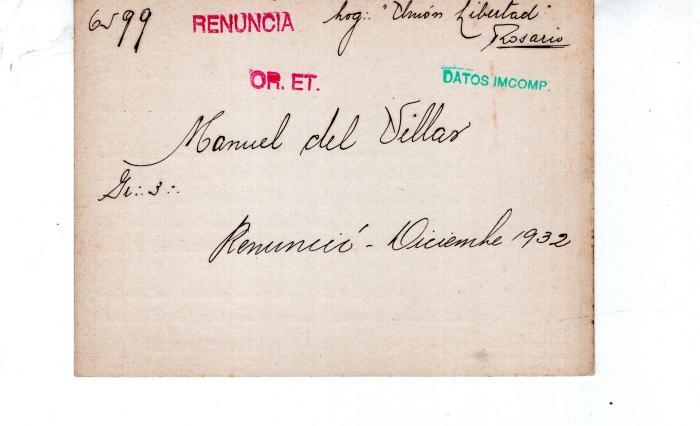 6599 RENUNCIA Log∴ "Unión Libertad"
Rosario
OR. ET. DATOS IMCOMP.
Manuel del Villar
Gr∴ 3∴
Renunció - Diciembre 1932